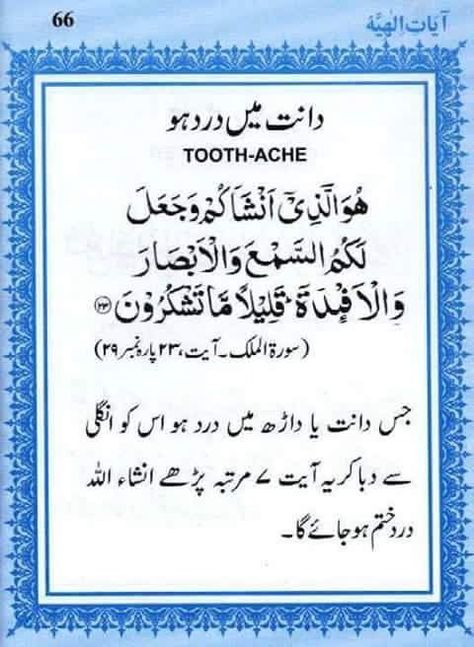 66
آیات الٰہیّہ
دانت میں درد ہو
TOOTH-ACHE
هُوَ الَّذِیْٓ اَنْشَاَکُمْ وَجَعَلَ
لَکُمُ السَّمْعَ وَالْاَبْصَارَ
وَالْاَفْـِٕدَةَ ؕ قَلِیْلًا مَّا تَشْکُرُوْنَ ﴿۲۳﴾
(سورۃ الملک۔ آیت، ۲۳ پارہ نمبر ۲۹)
جس دانت یا داڑھ میں درد ہو اس کو انگلی
سے دبا کر یہ آیت ۷ مرتبہ پڑھے انشاء اللہ
درد ختم ہو جائے گا۔